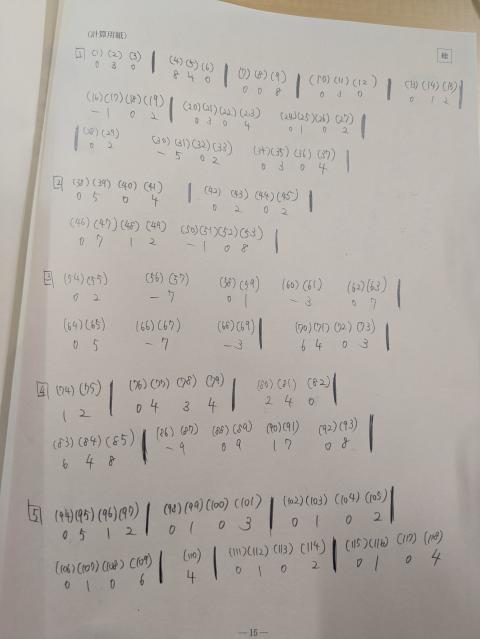 (計算用紙)
1 (1) (2) (3) | (4) (5) (6) | (7) (8) (9) | (10) (11) (12) | (13) (14) (15) |
0 3 0 8 4 0 0 0 8 0 3 0 0 1 2
(16) (17) (18) (19) | (20) (21) (22) (23) | (24) (25) (26) (27) |
- 1 0 2 0 3 0 4 0 1 0 2
(28) (29) (30) (31) (32) (33) (34) (35) (36) (37) |
0 2 - 5 0 2 0 3 0 4
2 (38) (39) (40) (41) | (42) (43) (44) (45) |
0 5 0 4 0 2 0 2
(46) (47) (48) (49) (50) (51) (52) (53) |
0 7 1 2 - 1 0 8
3 (54) (55) (56) (57) (58) (59) (60) (61) (62) (63) |
0 2 - 7 0 1 - 3 0 7
(64) (65) (66) (67) (68) (69) | (70) (71) (72) (73) |
0 5 - 7 - 3 6 4 0 3
4 (74) (75) | (76) (77) (78) (79) | (80) (81) (82) |
1 2 0 4 3 4 2 4 0
(83) (84) (85) | (86) (87) (88) (89) (90) (91) (92) (93) |
6 4 8 - 9 0 9 1 7 0 8
5 (94) (95) (96) (97) | (98) (99) (100) (101) | (102) (103) (104) (105) |
0 5 1 2 0 1 0 3 0 1 0 2
(106) (107) (108) (109) | (110) | (111) (112) (113) (114) | (115) (116) (117) (118)
0 1 0 6 4 0 1 0 2 0 1 0 4
— 15 —